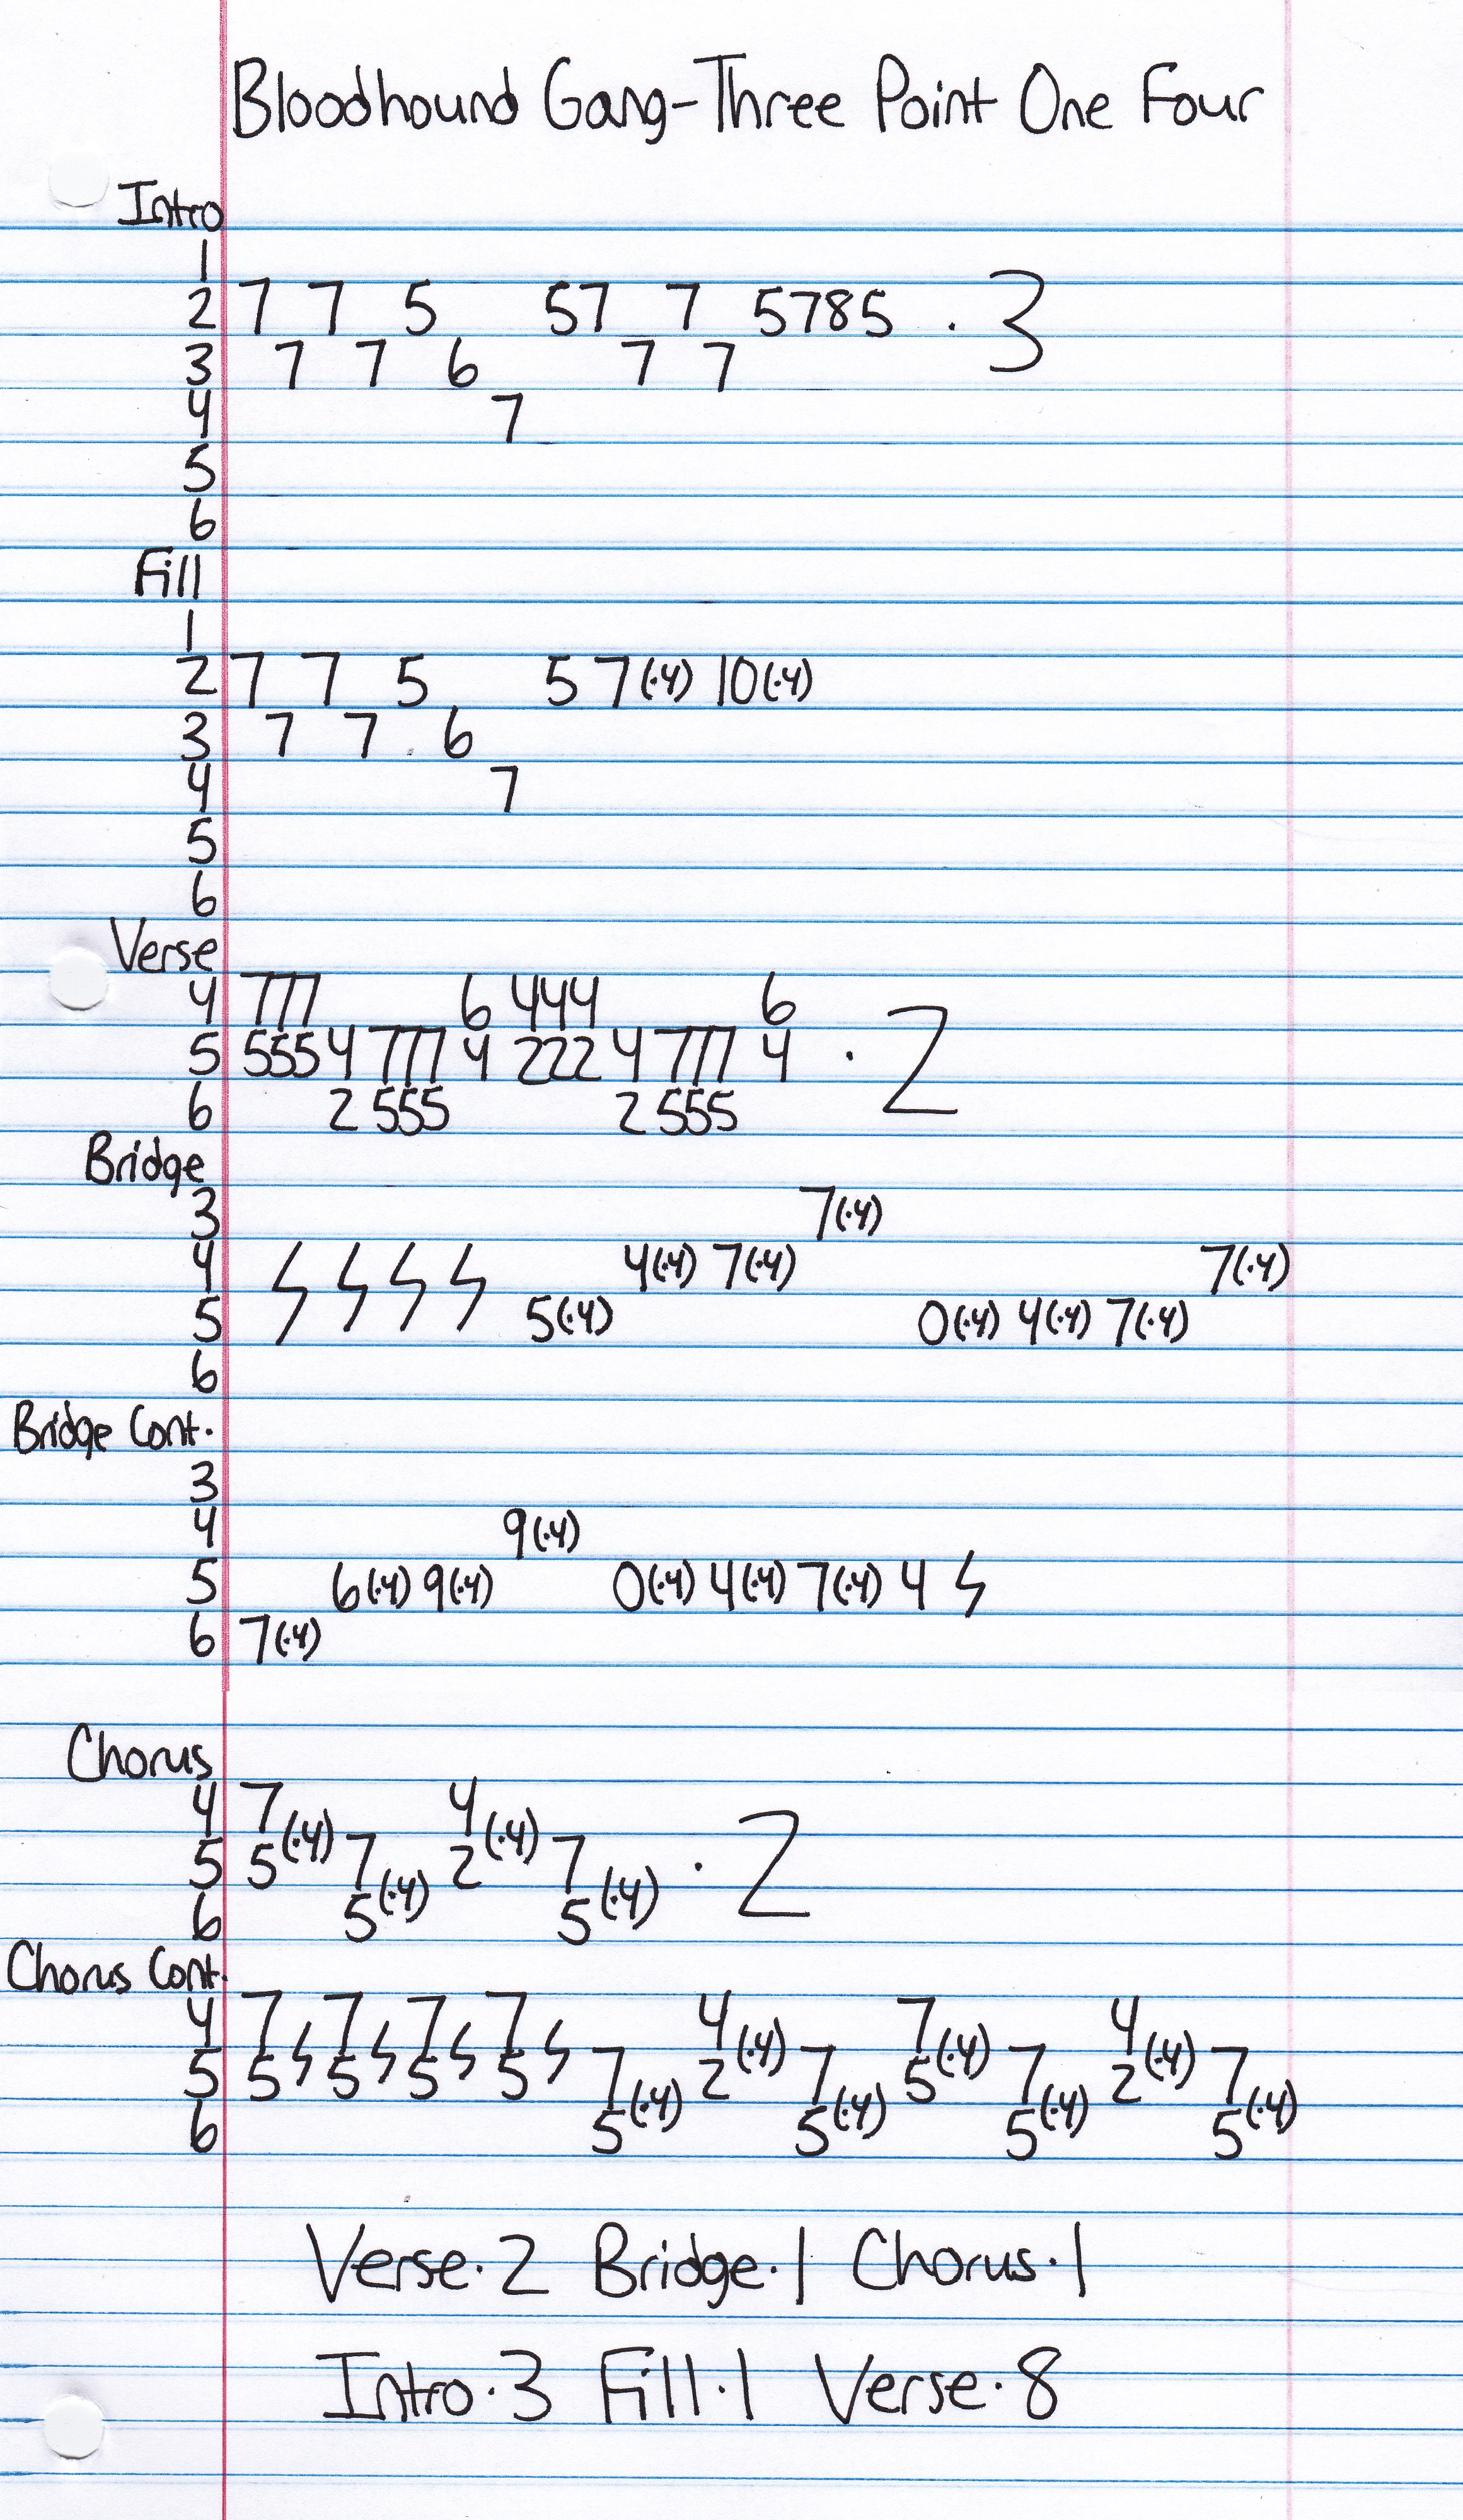 Bloodhound Gang-Three Point One Four
Intro
1
2 7 7 5 57 7 5785 · 3
3 7 7 6 7 7
4 7
5
6
Fill
1
2 7 7 5 5 7(·4) 10(·4)
3 7 7 6
4 7
5
6
Verse
4 777 6 444 6
5 555 4 777 4 222 4 777 4 · 2
6 2 555 2 555
Bridge
3 7(·4)
4 4(·4) 7(·4) 7(·4)
5 5(·4) 0(·4) 4(·4) 7(·4)
6
Bridge Cont.
3
4 9(·4)
5 6(·4) 9(·4) 0(·4) 4(·4) 7(·4) 4
6 7(·4)
Chorus
4 7 4
5 5(·4) 7 2(·4) 7 · 2
6 5(·4) 5(·4)
Chorus Cont.
4 7 7 7 7 4 7 4
5 5 5 5 5 7 2(·4) 7 5(·4) 7 2(·4) 7
6 5(·4) 5(·4) 5(·4) 5(·4)
Verse·2 Bridge·1 Chorus·1
Intro·3 Fill·1 Verse·8